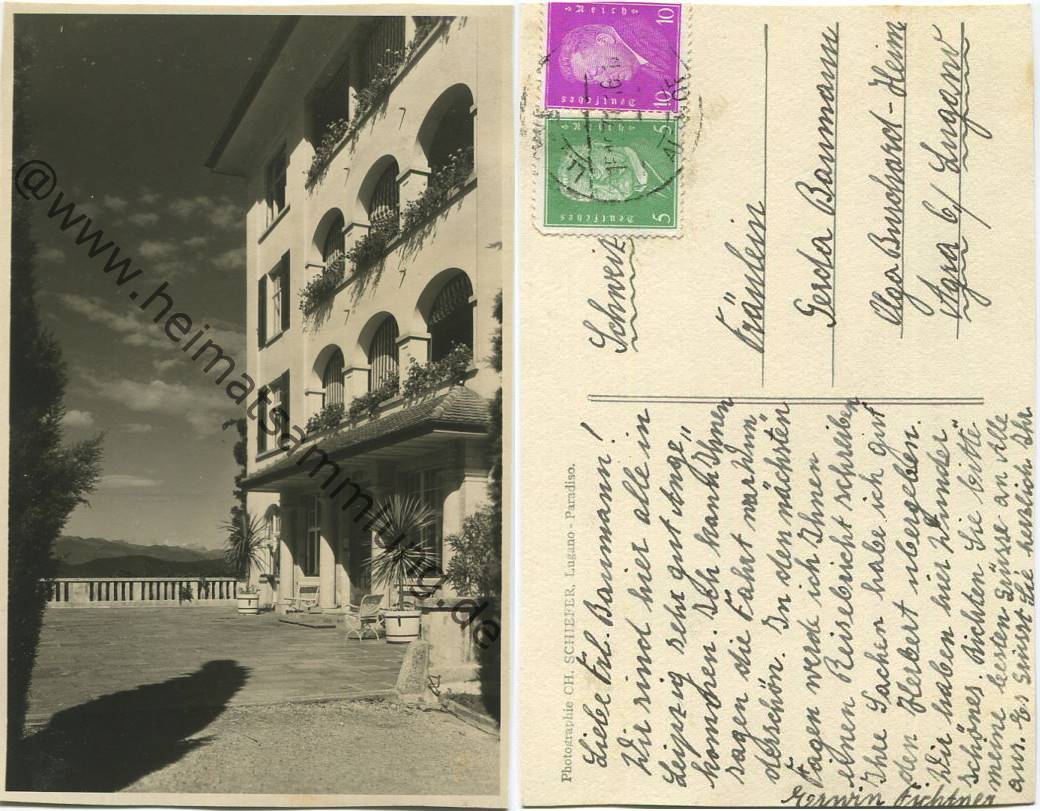 @www.heimatsammlung.de
Deutsches
Reich
10
10
Deutsches
Reich
5
5
Schweiz
Fräulein
Gerda Baumann
Agra b/ Lugano
Photographie CH. SCHIEFER, Lugano - Paradiso.
Liebe Frl. Baumann!
Wir sind hier alle in
Leipzig sehr gut ange„
kommen. Ich kann Ihnen
sagen die Fahrt war wun
derschön. In den nächsten
Tagen werde ich Ihnen
einen Reisebericht schreiben
Ihre Sachen habe ich gut
den Herbert übergeben.
Wir haben hier
schönes. Richten Sie bitte
meine besten Grüsse an Alle
aus. Es Grüsst Sie herzlich Ihr
Erwin Fichtner